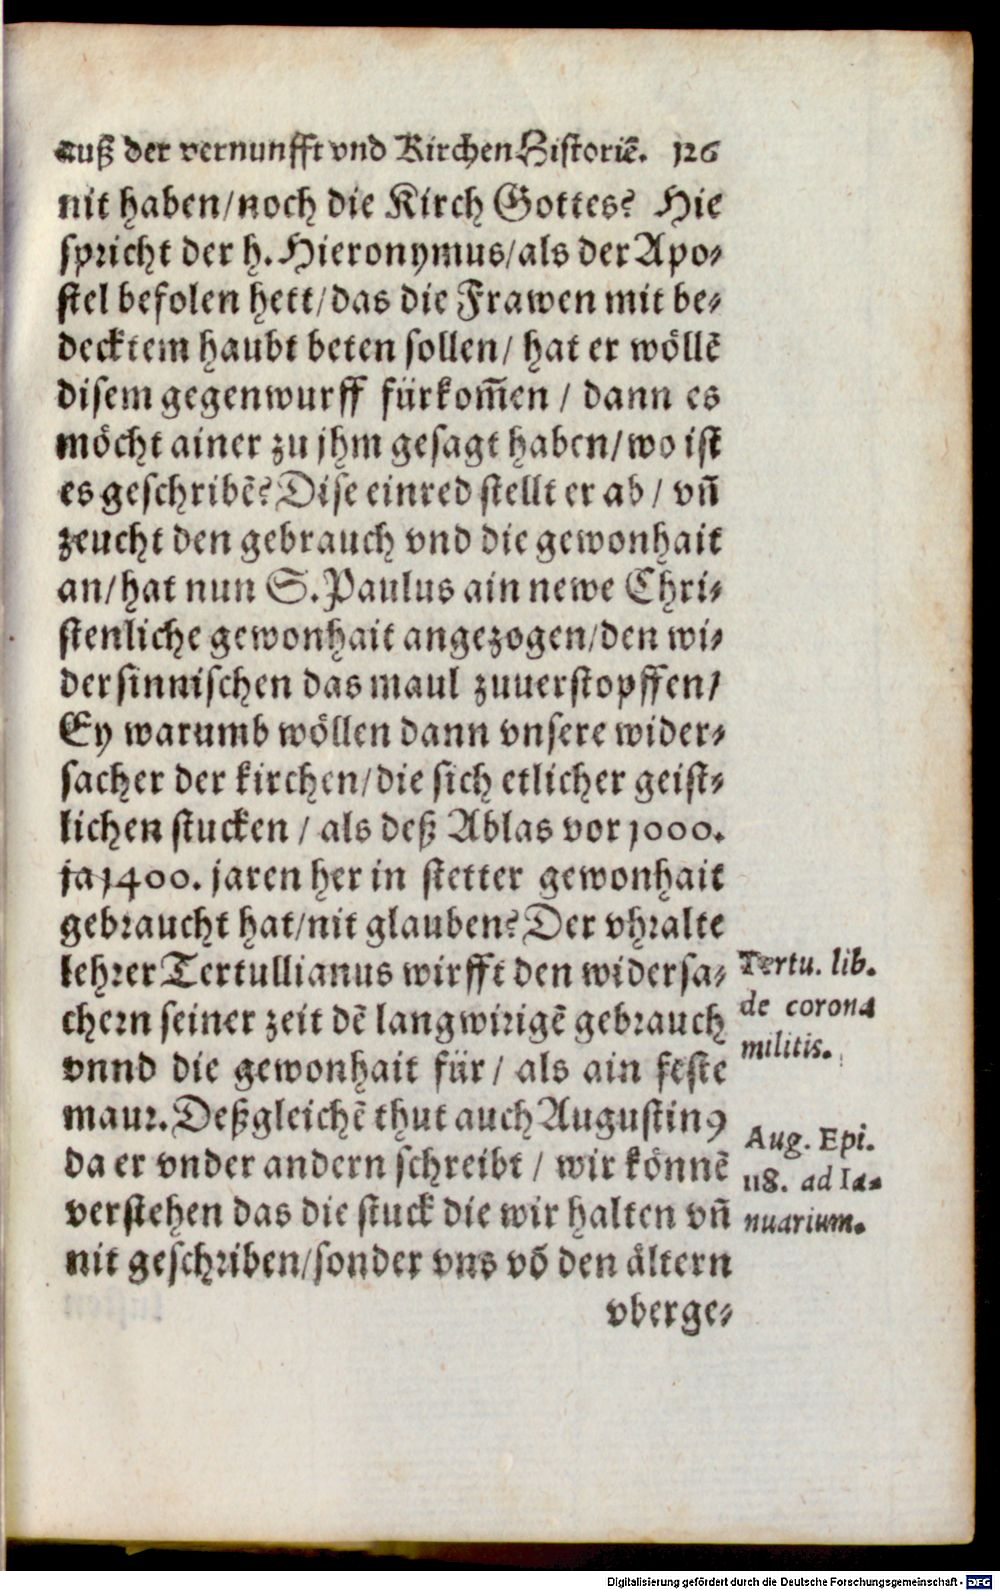 auß der vernunfft vnd Kirchen Historiē. 126
nit haben/noch die Kirch Gottes? Hie
spricht der h. Hieronymus/als der Apo-
stel befolen hett/das die Frawen mit be-
decktem haubt beten sollen/ hat er wöllē
disem gegenwurff fürkom̄en / dann es
möcht ainer zu jhm gesagt haben/wo ist
es geschribē? Dise einred stellt er ab / vn̄
zeucht den gebrauch vnd die gewonhait
an/hat nun S. Paulus ain newe Chri-
stenliche gewonhait angezogen/den wi-
dersinnischen das maul zuuerstopffen/
Ey warumb wöllen dann vnsere wider-
sacher der kirchen/die sich etlicher geist-
lichen stucken / als deß Ablas vor 1000.
ja 1400. jaren her in stetter gewonhait
gebraucht hat/nit glauben? Der vhralte
lehrer Tertullianus wirfft den widersa-
chern seiner zeit dē langwirigē gebrauch
vnnd die gewonhait für / als ain feste
maur. Deßgleichē thut auch Augustinꝰ
da er vnder andern schreibt / wir könnē
verstehen das die stuck die wir halten vn̄
nit geschriben/sonder vns vō den ältern
vberge-
Tertu. lib.
de corona
militis.
Aug. Epi.
118. ad Ia-
nuarium.
Digitalisierung gefördert durch die Deutsche Forschungsgemeinschaft - DFG